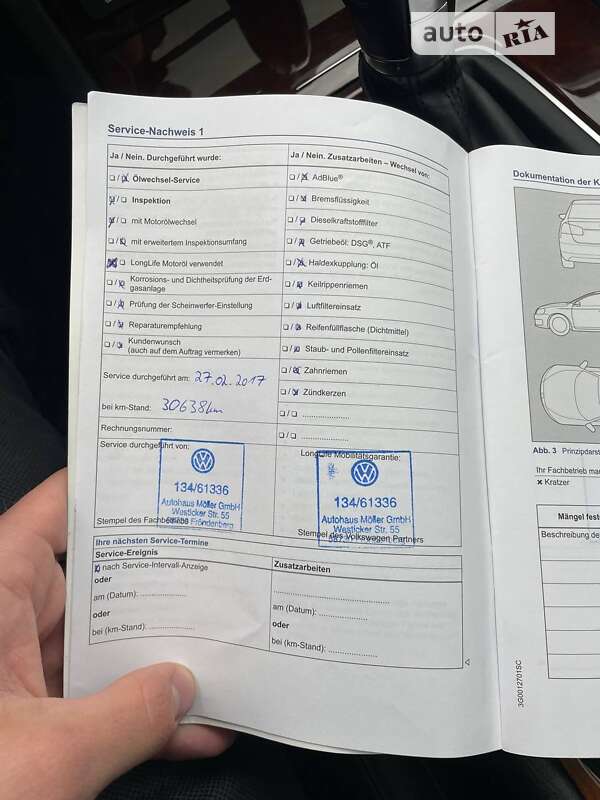 auto RIA
Service-Nachweis 1
Ja / Nein. Durchgeführt wurde:
❏/❏ Ölwechsel-Service
❏/❏ Inspektion
❏/❏ mit Motorölwechsel
❏/❏ mit erweitertem Inspektionsumfang
❏/❏ LongLife Motoröl verwendet
❏/❏ Korrosions- und Dichtheitsprüfung der Erd-
gasanlage
❏/❏ Prüfung der Scheinwerfer-Einstellung
❏/❏ Reparaturempfehlung
❏/❏ Kundenwunsch
(auch auf dem Auftrag vermerken)
Service durchgeführt am: 27.02.2017
bei km-Stand: 30638km
Rechnungsnummer:
Service durchgeführt von:
134/61336
Autohaus Möller GmbH
Westicker Str. 55
Fröndenberg
Stempel des Fachbetriebs
Ja / Nein. Zusatzarbeiten – Wechsel von:
❏/❏ AdBlue®
❏/❏ Bremsflüssigkeit
❏/❏ Dieselkraftstofffilter
❏/❏ Getriebeöl: DSG®, ATF
❏/❏ Haldexkupplung: Öl
❏/❏ Keilrippenriemen
❏/❏ Luftfiltereinsatz
❏/❏ Reifenfüllflasche (Dichtmittel)
❏/❏ Staub- und Pollenfiltereinsatz
❏/❏ Zahnriemen
❏/❏ Zündkerzen
❏/❏ ....................
❏/❏ ....................
LongLife Mobilitätsgarantie:
134/61336
Autohaus Möller GmbH
Westicker Str. 55
Stempel des Volkswagen Partners
Ihre nächsten Service-Termine
Service-Ereignis
❏ nach Service-Intervall-Anzeige
oder
am (Datum): ....................
oder
bei (km-Stand): ....................
Zusatzarbeiten
........................................
am (Datum): ....................
oder
bei (km-Stand): ....................
Dokumentation der K
Abb. 3 Prinzipdarst
Ihr Fachbetrieb mar
✖ Kratzer
Mängel fest
Beschreibung de
3G0012701SC